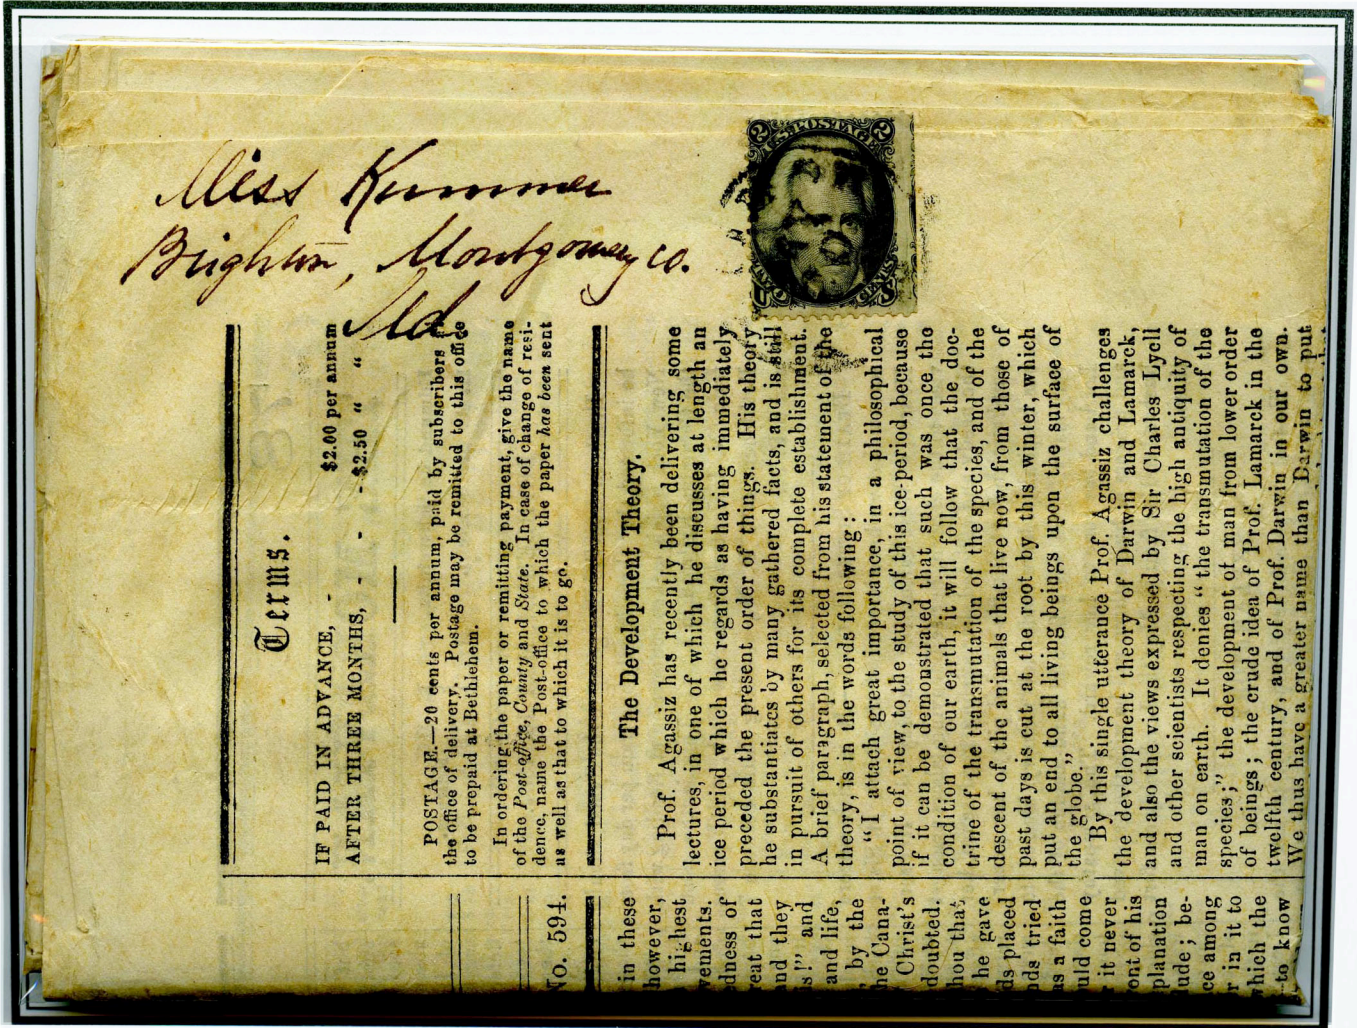 Miss Kummer
Brighton, Montgomery co.
Md
2 U.S. POSTAGE 2
TWO CENTS
U S
Terms.
IF PAID IN ADVANCE, - $2.00 per annum
AFTER THREE MONTHS, - - - $2.50 “ “
POSTAGE.—20 cents per annum, paid by subscribers
the office of delivery. Postage may be remitted to this office
to be prepaid at Bethlehem.
In ordering the paper or remitting payment, give the name
of the Post-office, County and State. In case of change of resi-
dence, name the Post-office to which the paper has been sent
as well as that to which it is to go.
The Development Theory.
Prof. Agassiz has recently been delivering some
lectures, in one of which he discusses at length an
ice period which he regards as having immediately
preceded the present order of things. His theory
he substantiates by many gathered facts, and is still
in pursuit of others for its complete establishment.
A brief paragraph, selected from his statement of the
theory, is in the words following :
“I attach great importance, in a philosophical
point of view, to the study of this ice-period, because
if it can be demonstrated that such was once the
condition of our earth, it will follow that the doc-
trine of the transmutation of the species, and of the
descent of the animals that live now, from those of
past days is cut at the root by this winter, which
put an end to all living beings upon the surface of
the globe.”
By this single utterance Prof. Agassiz challenges
the development theory of Darwin and Lamarck,
and also the views expressed by Sir Charles Lyell
and other scientists respecting the high antiquity of
man on earth. It denies “the transmutation of the
species;” the development of man from lower order
of beings; the crude idea of Prof. Lamarck in the
twelfth century, and of Prof. Darwin in our own.
We thus have a greater name than Darwin to put
No. 594.
in these
however,
highest
vements.
dness of
reat that
nd they
is!” and
and life,
, by the
he Cana-
Christ's
doubted.
hou that
he gave
ds placed
nds tried
as a faith
uld come
r it never
ont of his
planation
lude; be-
ce among
r in it to
hich the
to know